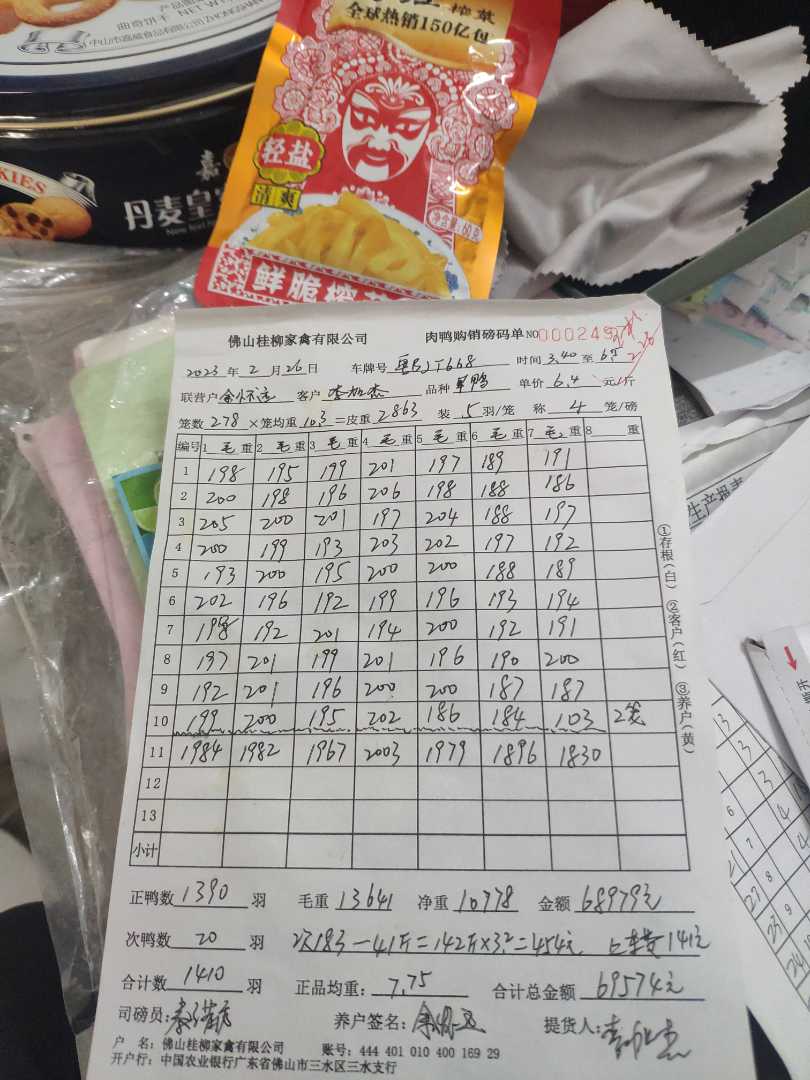 产品图
曲奇饼干 NETW
中山市嘉威食品有限公司
KIES
嘉
丹麦皇
榨菜
全球热销150亿包
轻盐
清爽
鲜脆榨菜
佛山桂柳家禽有限公司 肉鸭购销磅码单 NO 000249
2023 年 2 月 26 日 车牌号 粤BJT668 时间 3.40 至
联营户 客户 品种 单鸭 单价 6.4 元/斤
笼数 278 ×笼均重 10.3 =皮重 2863 装 5 羽/笼 称 4 笼/磅
编号 1 毛 重 2 毛 重 3 毛 重 4 毛 重 5 毛 重 6 毛 重 7 毛 重 8 重
1 198 195 199 201 197 189 191
2 200 198 196 206 198 188 186
3 205 200 201 197 204 188 197
4 200 199 193 203 202 197 192
5 193 200 195 200 200 188 189
6 202 196 192 199 196 193 194
7 198 192 201 194 200 192 191
8 197 201 199 201 196 190 200
9 192 201 196 200 200 187 187
10 199 200 195 202 186 184 103 2笼
11 1984 1982 1967 2003 1979 1896 1830
12
13
小计
正鸭数 1390 羽 毛重 13641 净重 10778 金额 68979元
次鸭数 20 羽 次183-41斤=142斤×3.2=454元 141元
合计数 1410 羽 正品均重: 7.75 合计总金额 69574元
司磅员: 养户签名: 提货人:
户 名: 佛山桂柳家禽有限公司 账号: 444 401 010 400 169 29
开户行: 中国农业银行广东省佛山市三水区三水支行
①存根(白) ②客户(红) ③养户(黄)
生产报表